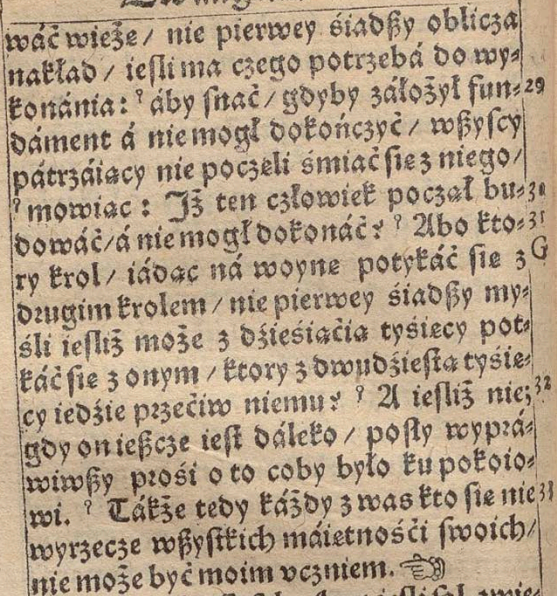 wáć wieże / nie pierwey śiadſzy oblicza
nakład / ieſli ma czego potrzebá do wy⸗
konánia: ˀ áby ſnać / gdyby záłożył fun⸗ 29
dáment á nie mogł dokończyć / wſzyſcy
pátrzáiący nie poczęli śmiać ſię z niego /
ˀ mowiąc: Iż ten człowiek począł bu⸗ 30
dowáć / á nie mogł dokonáć? ˀ Abo kto⸗ 31
ry krol / iádąc ná woynę potykáć ſię z G
drugim krolem / nie pierwey śiadſzy my⸗
śli ieſliż może z dźieśiąćią tyśięcy pot⸗
káć ſię z onym / ktory z dwudźieſtą tyśię⸗
cy iedźie przećiw niemu? ˀ A ieſliż nie; 32
gdy on ieſzcze ieſt dáleko / poſły wyprá⸗
wiwſzy prośi o to coby było ku pokoio⸗
wi. ˀ Tákże tedy káżdy z was kto ſię nie 33
wyrzecze wſzyſtkich máiętnośći ſwoich /
nie może być moim vczniem. ☜